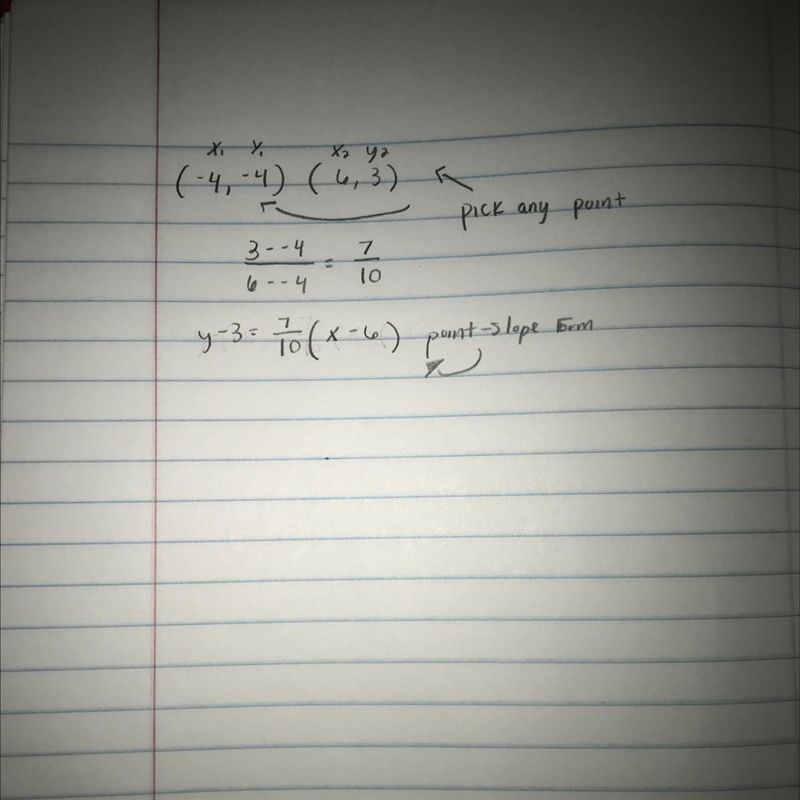 x₁ y₁ x₂ y₂
(-4, -4) (6, 3)
pick any point
3--4 / 6--4 = 7/10
y-3 = 7/10 (x-6) point-slope form